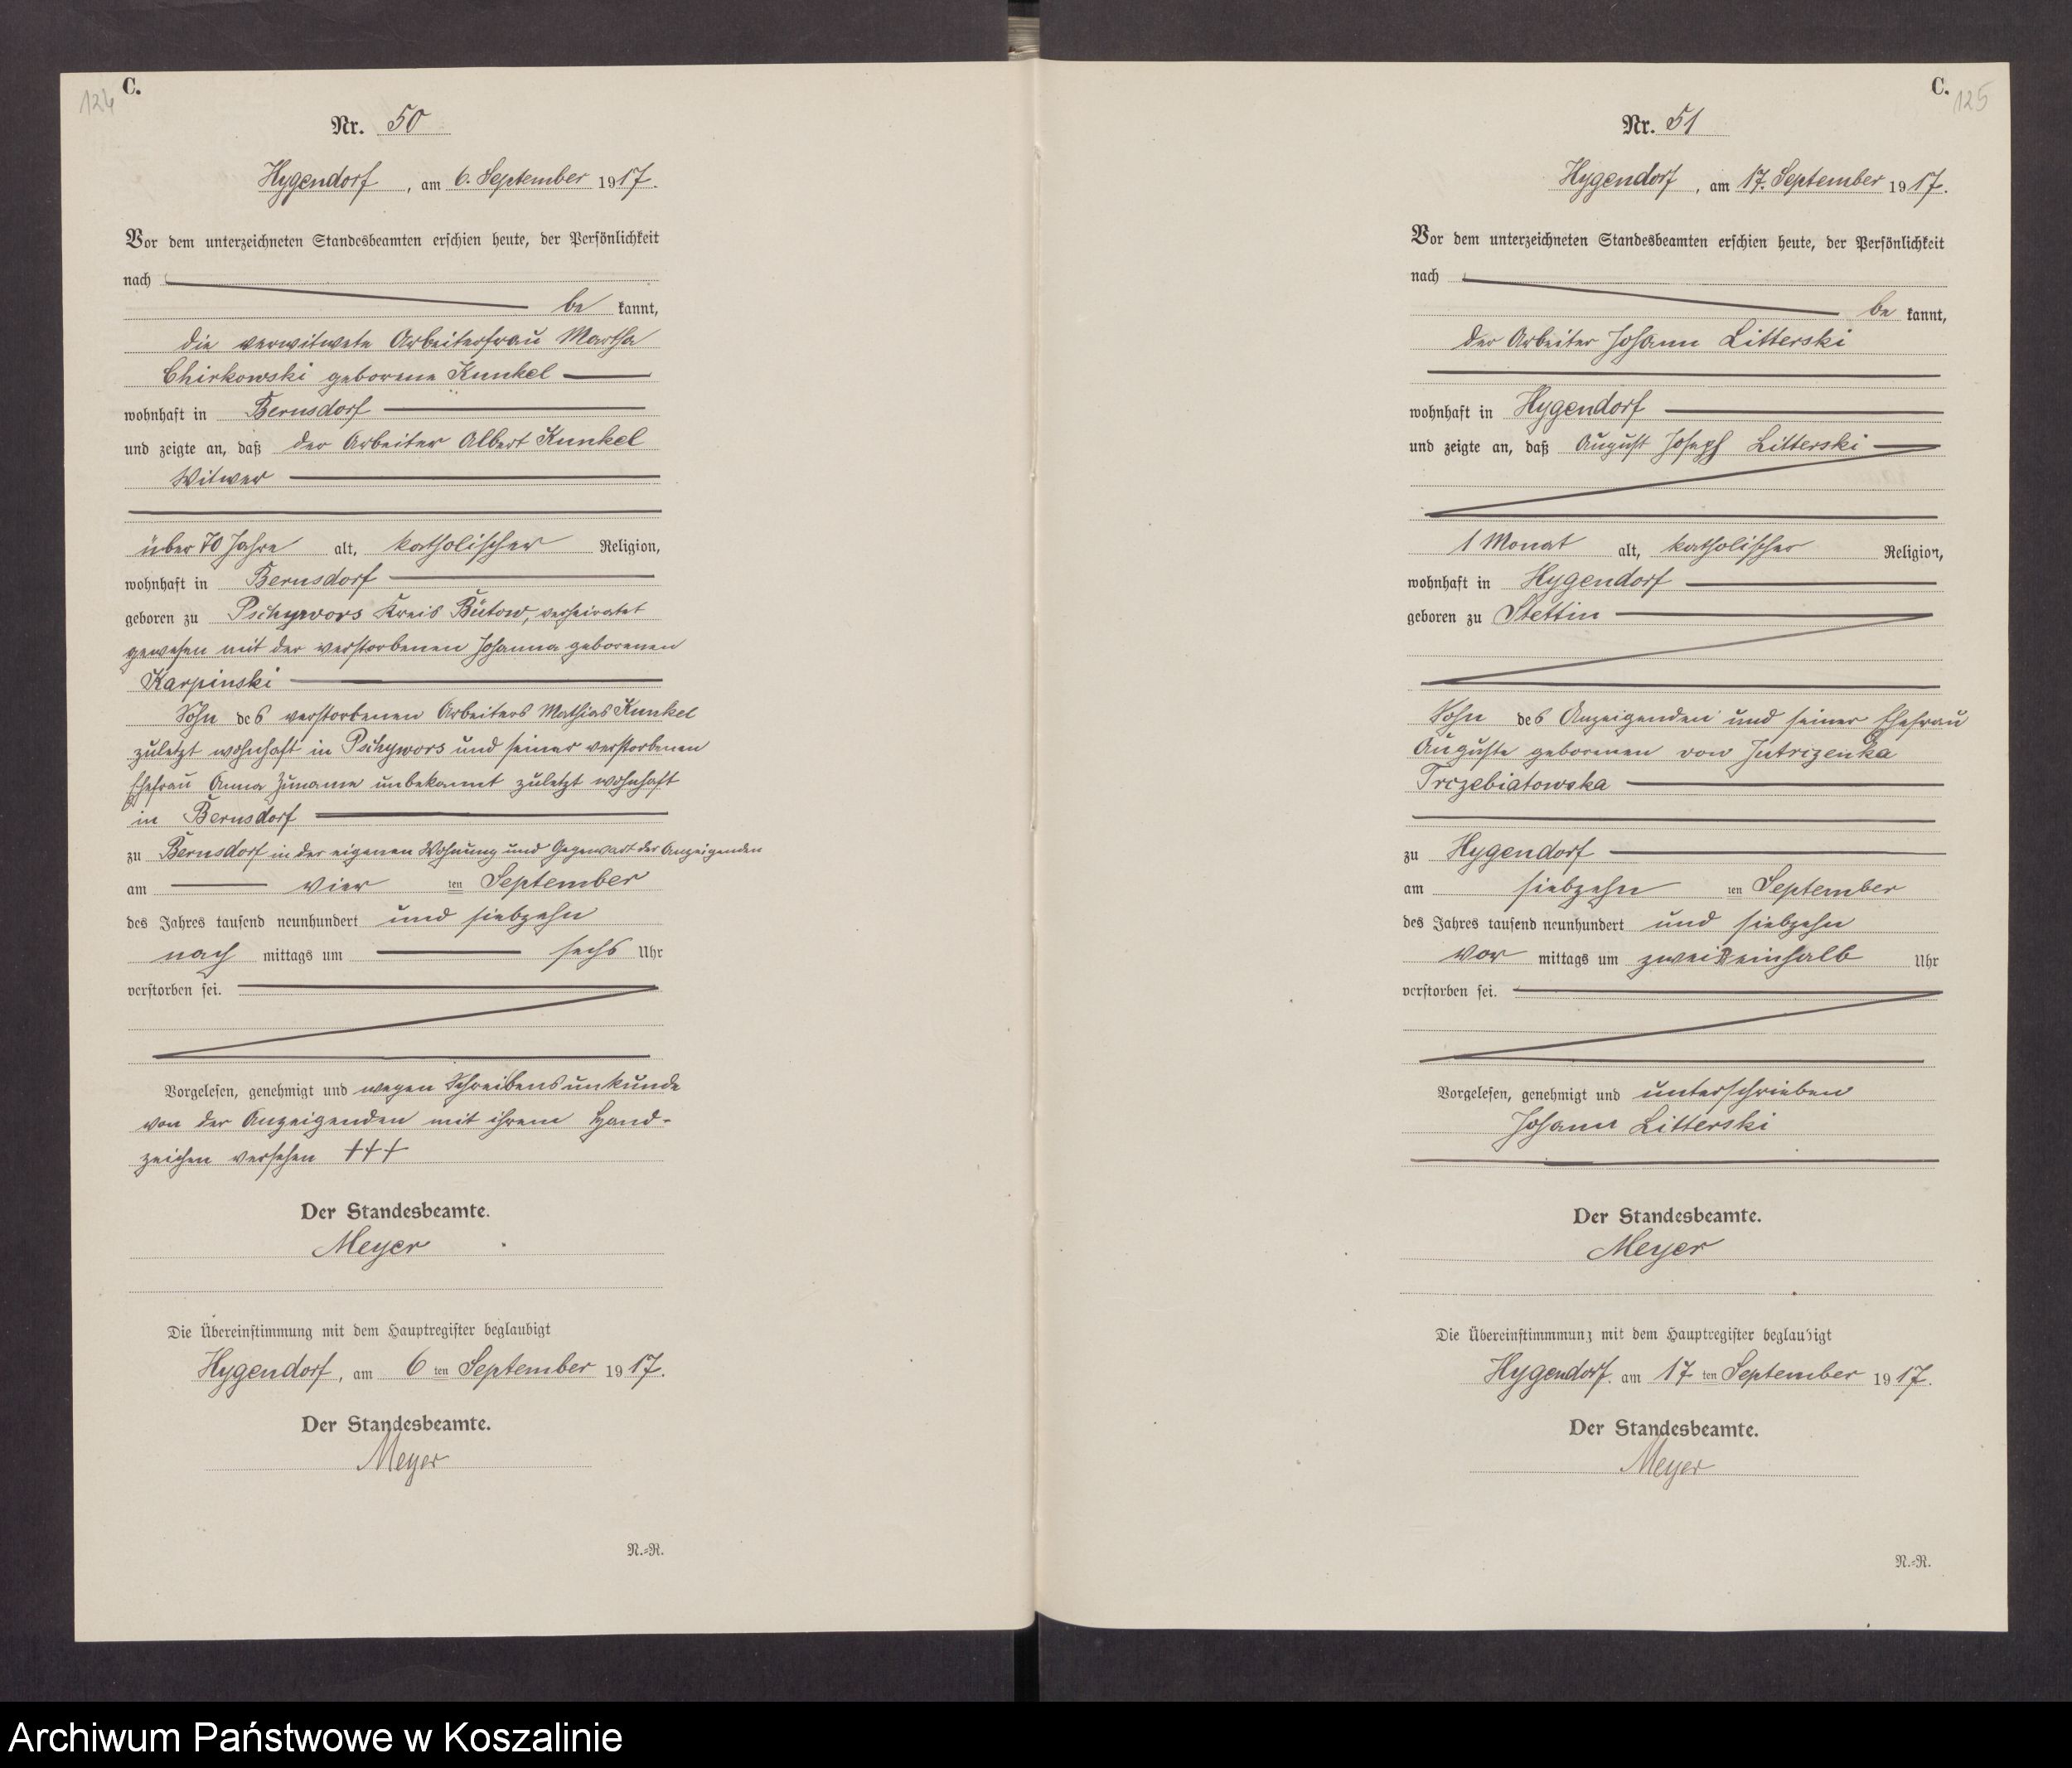 124
C.
Nr. 50
Hygendorf, am 6. September 1917.
Vor dem unterzeichneten Standesbeamten erschien heute, der Persönlichkeit
nach
be kannt,
die verwitwete Arbeiterfrau Martha
Chirkowski geborene Kunkel
wohnhaft in Bernsdorf
und zeigte an, daß der Arbeiter Albert Kunkel
Witwer
über 70 Jahre alt, katholischer Religion,
wohnhaft in Bernsdorf
geboren zu Pschywors Kreis Bütow, verheiratet
gewesen mit der verstorbenen Johanna geborenen
Karpinski
Sohn des verstorbenen Arbeiters Mathias Kunkel
zuletzt wohnhaft in Pschywors und seiner verstorbenen
Ehefrau Anna Zuname unbekannt zuletzt wohnhaft
in Bernsdorf
zu Bernsdorf in der eigenen Wohnung und Gegenwart der Anzeigenden
am vier ten September
des Jahres tausend neunhundert und siebzehn
nach mittags um sechs Uhr
verstorben sei.
Vorgelesen, genehmigt und wegen Schreibensunkunde
von der Anzeigenden mit ihrem Hand-
zeichen versehen +++
Der Standesbeamte.
Meyer
Die Übereinstimmung mit dem Hauptregister beglaubigt
Hygendorf, am 6 ten September 1917.
Der Standesbeamte.
Meyer
N.=R.
C.
125
Nr. 51
Hygendorf, am 17. September 1917.
Vor dem unterzeichneten Standesbeamten erschien heute, der Persönlichkeit
nach
be kannt,
der Arbeiter Johann Litterski
wohnhaft in Hygendorf
und zeigte an, daß August Joseph Litterski
1 Monat alt, katholischer Religion,
wohnhaft in Hygendorf
geboren zu Stettin
Sohn des Anzeigenden und seiner Ehefrau
Auguste geborenen von Jutrizenka
Trczebiatowska
zu Hygendorf
am siebzehn ten September
des Jahres tausend neunhundert und siebzehn
vor mittags um zwei einhalb Uhr
verstorben sei.
Vorgelesen, genehmigt und unterschrieben
Johann Litterski
Der Standesbeamte.
Meyer
Die Übereinstimmmung mit dem Hauptregister beglaubigt
Hygendorf. am 17 ten September 1917.
Der Standesbeamte.
Meyer
N.=R.
Archiwum Państwowe w Koszalinie